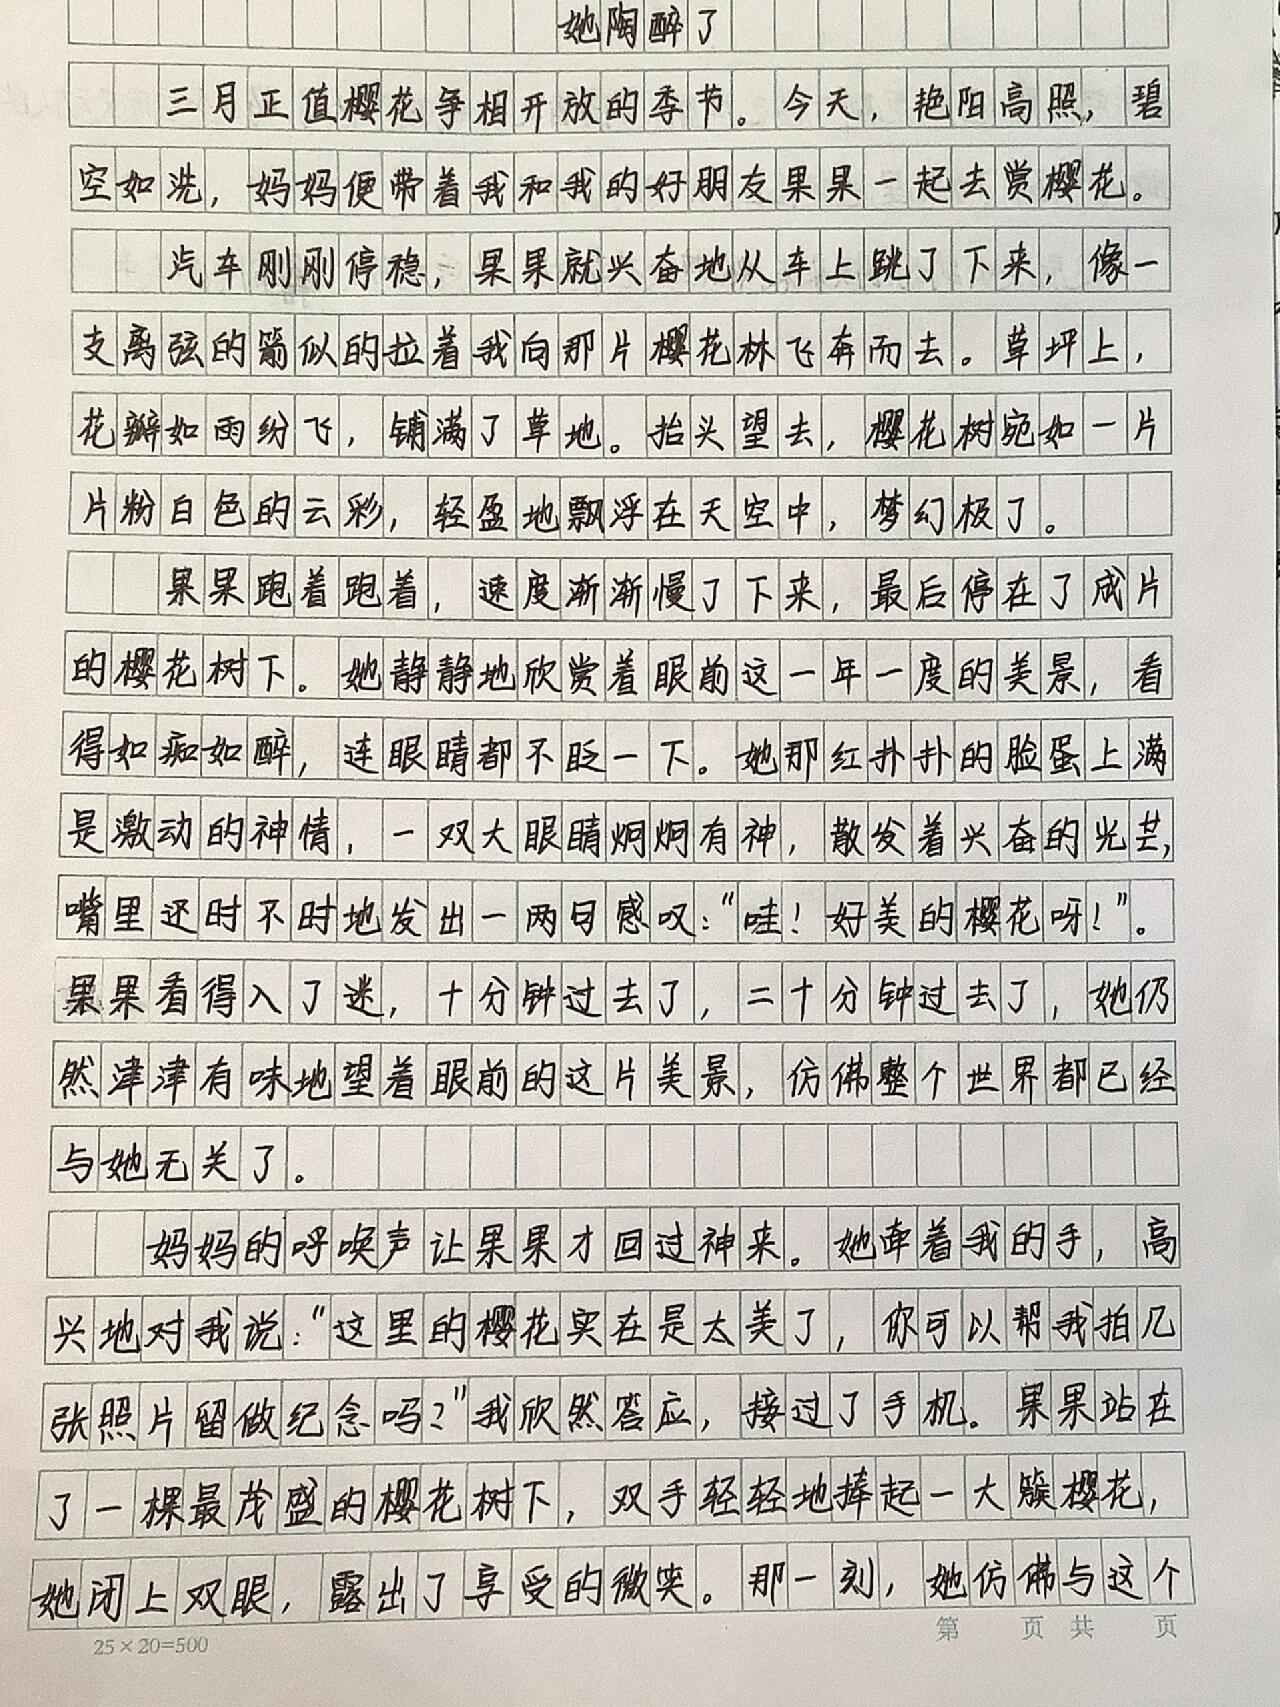 她陶醉了
三月正值樱花争相开放的季节。今天,艳阳高照,碧
空如洗,妈妈便带着我和我的好朋友果果一起去赏樱花。
汽车刚刚停稳,果果就兴奋地从车上跳了下来,像一
支离弦的箭似的拉着我向那片樱花林飞奔而去。草坪上,
花瓣如雨纷飞,铺满了草地。抬头望去,樱花树宛如一片
片粉白色的云彩,轻盈地飘浮在天空中,梦幻极了。
果果跑着跑着,速度渐渐慢了下来,最后停在了成片
的樱花树下。她静静地欣赏着眼前这一年一度的美景,看
得如痴如醉,连眼睛都不眨一下。她那红扑扑的脸蛋上满
是激动的神情,一双大眼睛炯炯有神,散发着兴奋的光芒,
嘴里还时不时地发出一两句感叹:“哇!好美的樱花呀!”。
果果看得入了迷,十分钟过去了,二十分钟过去了,她仍
然津津有味地望着眼前的这片美景,仿佛整个世界都已经
与她无关了。
妈妈的呼唤声让果果才回过神来。她牵着我的手,高
兴地对我说:“这里的樱花实在是太美了,你可以帮我拍几
张照片留做纪念吗?”我欣然答应,接过了手机。果果站在
了一棵最茂盛的樱花树下,双手轻轻地捧起一大簇樱花,
她闭上双眼,露出了享受的微笑。那一刻,她仿佛与这个
25×20=500 第 页 共 页